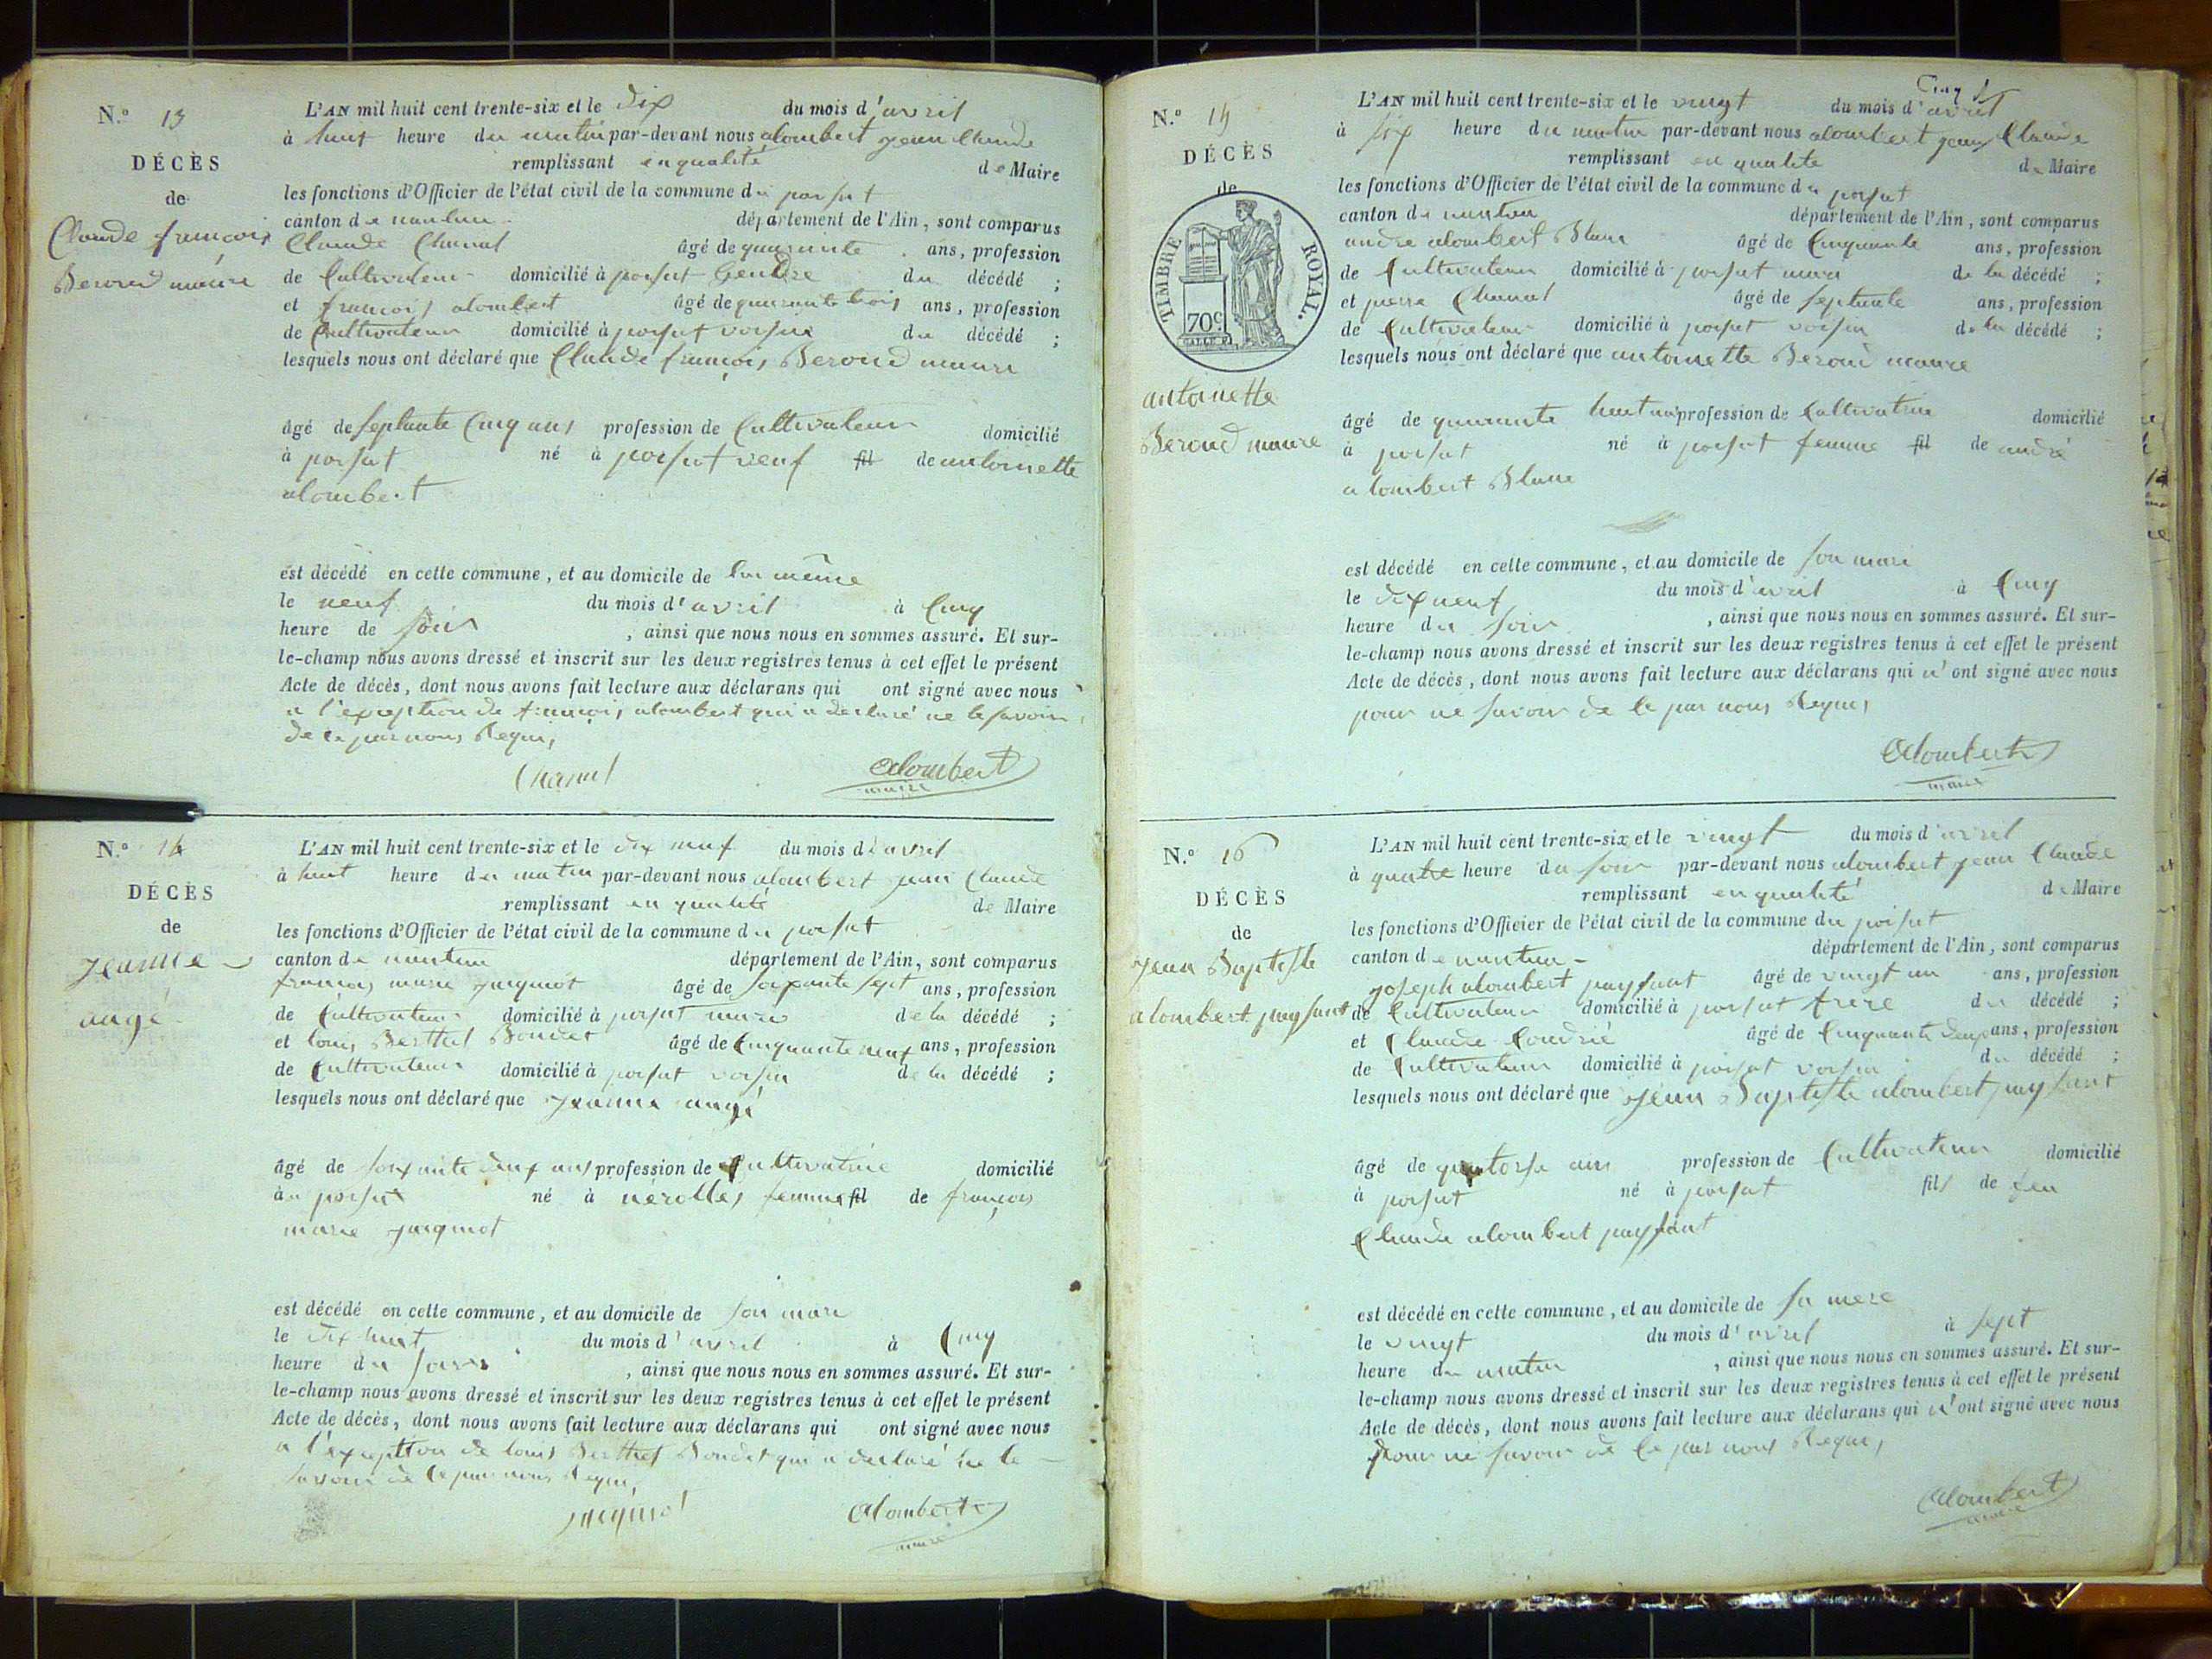 N.° 13
DÉCÈS
de
Claude françois
Beroud maure
L'AN mil huit cent trente-six et le dix du mois d'avril
à huit heure du matin par-devant nous alombert jean Claude
remplissant en qualité de Maire
les fonctions d'Officier de l'état civil de la commune du poisat
canton de nantua département de l'Ain, sont comparus
Claude Chanal âgé de quarante ans, profession
de Cultivateur domicilié à poisat Gendre du décédé ;
et françois alombert âgé de quarante trois ans, profession
de Cultivateur domicilié à poisat voisin du décédé ;
lesquels nous ont déclaré que Claude françois Beroud maure
âgé de septante Cinq ans profession de Cultivateur domicilié
à poisat né à poisat veuf fil de antoinette
alombert
est décédé en cette commune, et au domicile de lui même
le neuf du mois d'avril à Cinq
heure de soir , ainsi que nous nous en sommes assuré. Et sur-
le-champ nous avons dressé et inscrit sur les deux registres tenus à cet effet le présent
Acte de décès, dont nous avons fait lecture aux déclarans qui ont signé avec nous
a l'exception de françois alombert qui a declaré ne le savoir
de ce par nous Requis,
Chanal alombert
maire
N.° 14
DÉCÈS
de
jeanne
augé
L'AN mil huit cent trente-six et le dix neuf du mois d'avril
à huit heure du matin par-devant nous alombert jean Claude
remplissant en qualité de Maire
les fonctions d'Officier de l'état civil de la commune du poisat
canton de nantua département de l'Ain, sont comparus
françois marie jaquinot âgé de soixante sept ans, profession
de Cultivateur domicilié à poisat mari de la décédé ;
et louis Berthet Bondet âgé de Cinquante neuf ans, profession
de Cultivateur domicilié à poisat voisin de la décédé ;
lesquels nous ont déclaré que jeanne augé
âgé de soixante deux ans profession de Cultivatrice domicilié
à poisat né à nérolles femme fil de françois
marie jaquinot
est décédé en cette commune, et au domicile de son mari
le dix huit du mois d'avril à Cinq
heure du soir , ainsi que nous nous en sommes assuré. Et sur-
le-champ nous avons dressé et inscrit sur les deux registres tenus à cet effet le présent
Acte de décès, dont nous avons fait lecture aux déclarans qui ont signé avec nous
a l'exception de louis Berthet Bondet qui a declaré ne le
savoir de ce par nous Requis,
alombert
maire
N.° 15
DÉCÈS
de
TIMBRE ROYAL.
70c
antoinette
Beroud maure
L'AN mil huit cent trente-six et le vingt du mois d'avril
à six heure du matin par-devant nous alombert jean Claude
remplissant en qualité de Maire
les fonctions d'Officier de l'état civil de la commune du poisat
canton de nantua département de l'Ain, sont comparus
andré alombert Blanc âgé de Cinquante ans, profession
de Cultivateur domicilié à poisat mari de la décédé ;
et pierre Chanal âgé de septante ans, profession
de Cultivateur domicilié à poisat voisin de la décédé ;
lesquels nous ont déclaré que antoinette Beroud maure
âgé de quarante huit ans profession de Cultivatrice domicilié
à poisat né à poisat femme fil de andré
alombert Blanc
est décédé en cette commune, et au domicile de son mari
le dix neuf du mois d'avril à Cinq
heure du soir , ainsi que nous nous en sommes assuré. Et sur-
le-champ nous avons dressé et inscrit sur les deux registres tenus à cet effet le présent
Acte de décès, dont nous avons fait lecture aux déclarans qui n'ont signé avec nous
pour ne savoir de ce par nous Requis,
alombert
maire
N.° 16
DÉCÈS
de
jean Baptiste
alombert paysant
L'AN mil huit cent trente-six et le vingt du mois d'avril
à quatre heure du soir par-devant nous alombert jean Claude
remplissant en qualité de Maire
les fonctions d'Officier de l'état civil de la commune du poisat
canton de nantua département de l'Ain, sont comparus
joseph alombert paysant âgé de vingt un ans, profession
de Cultivateur domicilié à poisat frère du décédé ;
et Claude Coudrié âgé de Cinquante deux ans, profession
de Cultivateur domicilié à poisat voisin du décédé ;
lesquels nous ont déclaré que jean Baptiste alombert paysant
âgé de quatorse ans profession de Cultivateur domicilié
à poisat né à poisat fils de feu
Claude alombert paysant
est décédé en cette commune, et au domicile de sa mere
le vingt du mois d'avril à sept
heure du matin , ainsi que nous nous en sommes assuré. Et sur-
le-champ nous avons dressé et inscrit sur les deux registres tenus à cet effet le présent
Acte de décès, dont nous avons fait lecture aux déclarans qui n'ont signé avec nous
pour ne savoir de ce par nous Requis,
alombert
maire